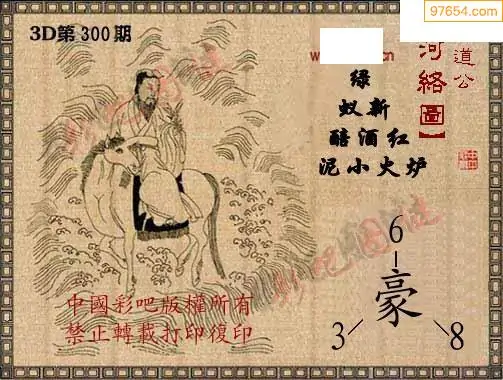 97654.com
3D第300期
w
cn
道公
河絡圖】
绿
蚁新
醅酒红
泥小火炉
6
豪
3
8
中國彩吧版權所有
禁止轉載打印復印